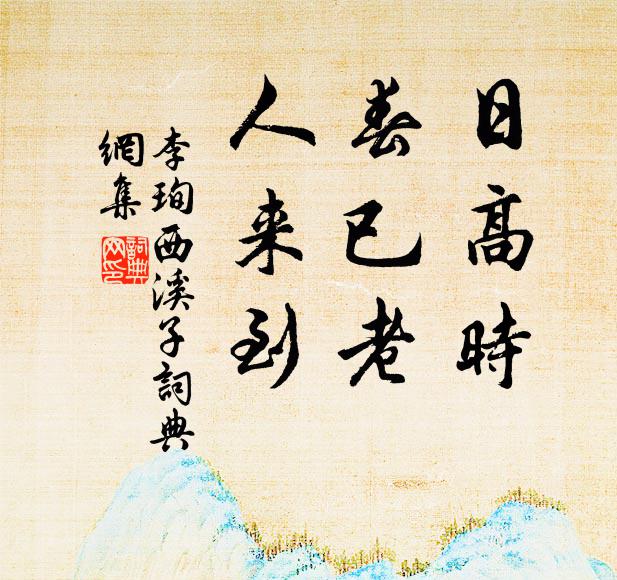 日高時
春已老
人来到
李珣西溪子詞典
網集
詞典
网印